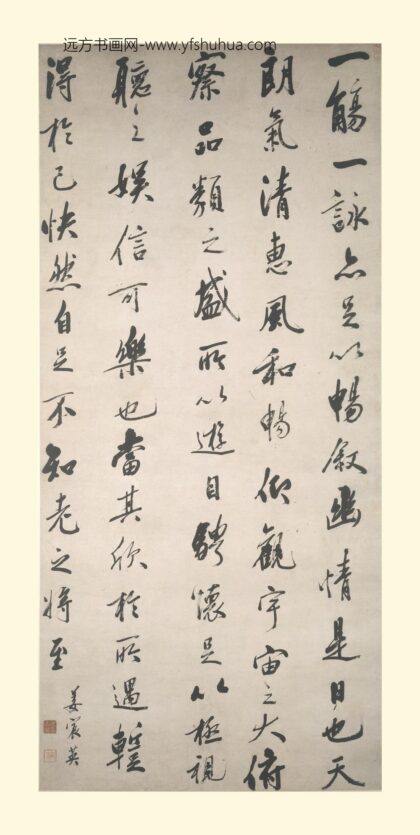 远方书画网-www.yfshuhua.com
一觴一詠亦足以暢叙幽情是日也天
朗氣清惠風和暢仰觀宇宙之大俯
察品類之盛所以遊目騁懷足以極視
聽之娱信可樂也當其欣於所遇暫
得於己快然自足不知老之將至
姜宸英